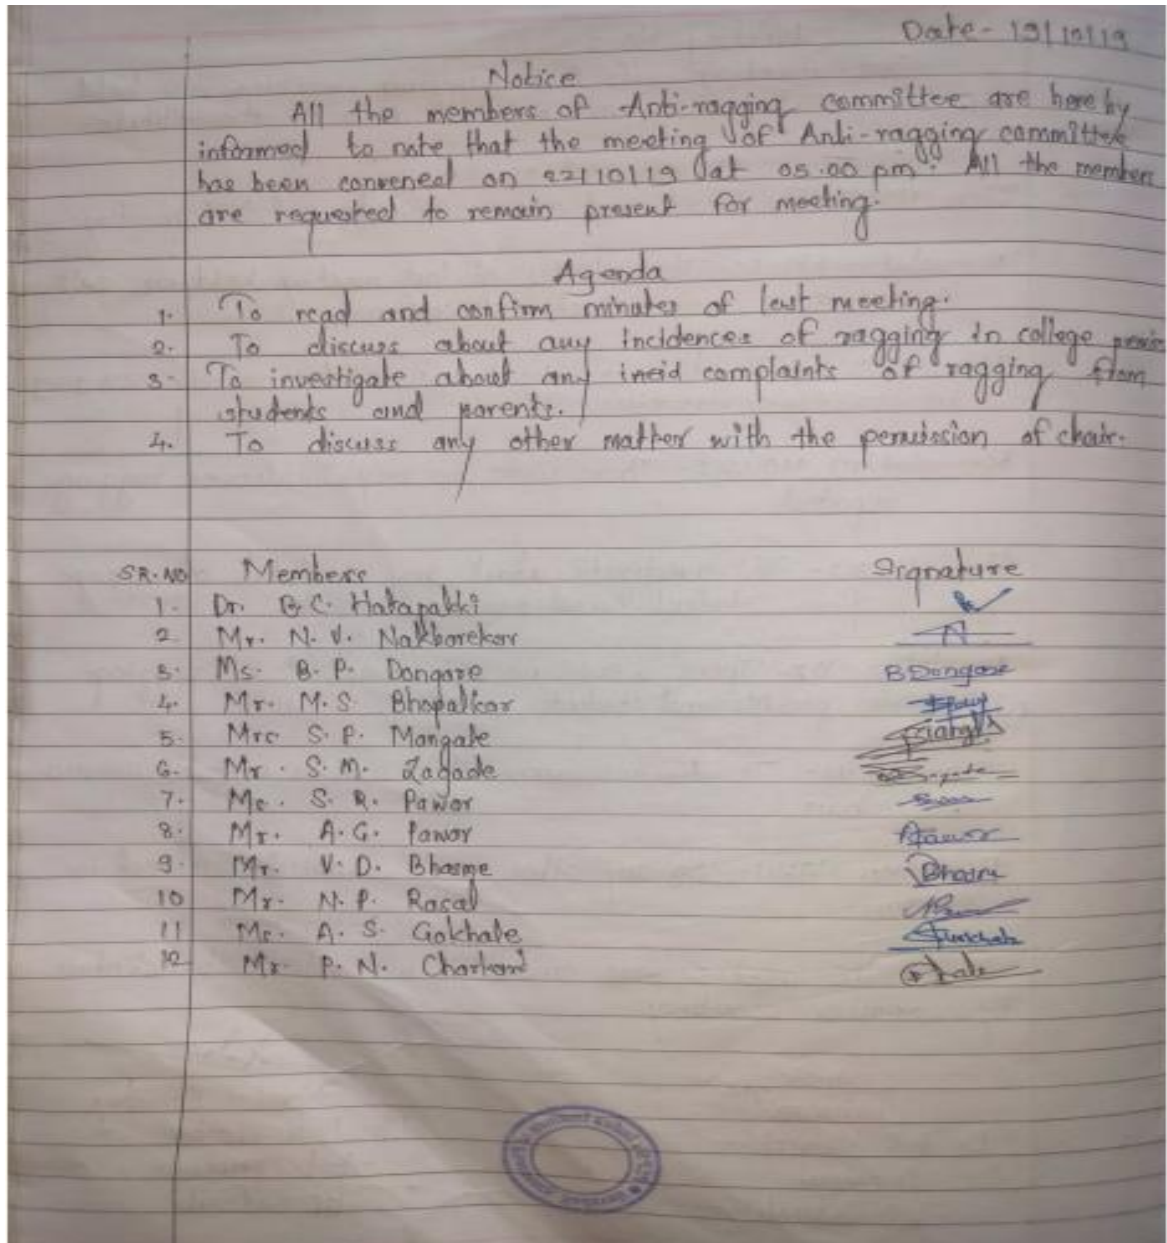 Date - 19/10/19
Notice
All the members of Anti-ragging committee are here by
informed to note that the meeting of Anti-ragging committee
has been convened on 22/10/19 at 05.00 pm. All the members
are requested to remain present for meeting.
Agenda
1. To read and confirm minutes of last meeting.
2. To discuss about any incidences of ragging in college
3- To investigate about any ineid complaints of ragging from
students and parents.
4. To discuss any other matter with the permission of chair.
SR.NO Members Signature
1. Dr. B.C. Hatapakki
2. Mr. N. V. Nakhorekar
3. Ms. B. P. Dongare B Dongare
4. Mr. M.S. Bhopalkar
5. Mrs. S. P. Mangale
6. Mr. S. M. Zagade
7. Mr. S. R. Pawar
8. Mr. A. G. Pawar Pawar
9. Mr. V. D. Bhasme Bhasme
10 Mr. N. P. Rasal
11 Mr. A. S. Gokhale
12 Mr. P. N.